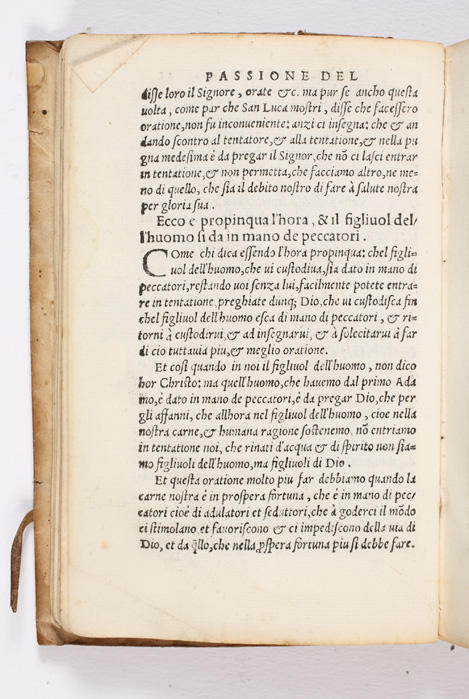 PASSIONE DEL
disse loro il Signore, orate &c. ma pur se ancho questa
uolta, come par che San Luca mostri, disse che facessero
oratione, non fu inconueniente: anzi ci insegna: che & an
dando scontro al tentatore, & alla tentatione, & nella pu
gna medesima é da pregar il Signor, che nō ci lasci entrar
in tentatione, & non permetta, che facciamo altro, ne me=
no di quello, che sia il debito nostro di fare à salute nostra
per gloria sua.
Ecco e propinqua l'hora, & il figliuol del/
l'huomo si da in mano de peccatori.
COme chi dica essendo l'hora propinqua: chel figli=
uol dell'huomo, che ui custodiua, sia dato in mano di
peccatori, restando uoi senza lui, facilmente potete entra=
re in tentatione, preghiate dunq; Dio, che ui custodisca fin
chel figliuol dell'huomo esca di mano di peccatori, & ri=
torni à custodirui, & ad insegnarui, & à solecitarui à far
di cio tuttauia piu, & meglio oratione.
Et cosi quando in noi il figliuol dell'huomo, non dico
hor Christo: ma quell'huomo, che hauemo dal primo Ada
mo, é dato in mano de peccatori, é da pregar Dio, che per
gli affanni, che allhora nel figliuol dell'huomo, cioe nella
nostra carne, & humana ragione sostenemo, nō entriamo
in tentatione noi, che rinati d'acqua & di spirito non sia=
mo figliuoli dell'huomo, ma figliuoli di Dio.
Et questa oratione molto piu far debbiamo quando la
carne nostra é in prospera fortuna, che é in mano di pec=
catori cioé di adulatori et seduttori, che à goderci il mōdo
ci stimolano et fauoriscono & ci impediscono della uia di
Dio, et da q̄llo, che nella ꝓspera fortuna piu si debbe fare.